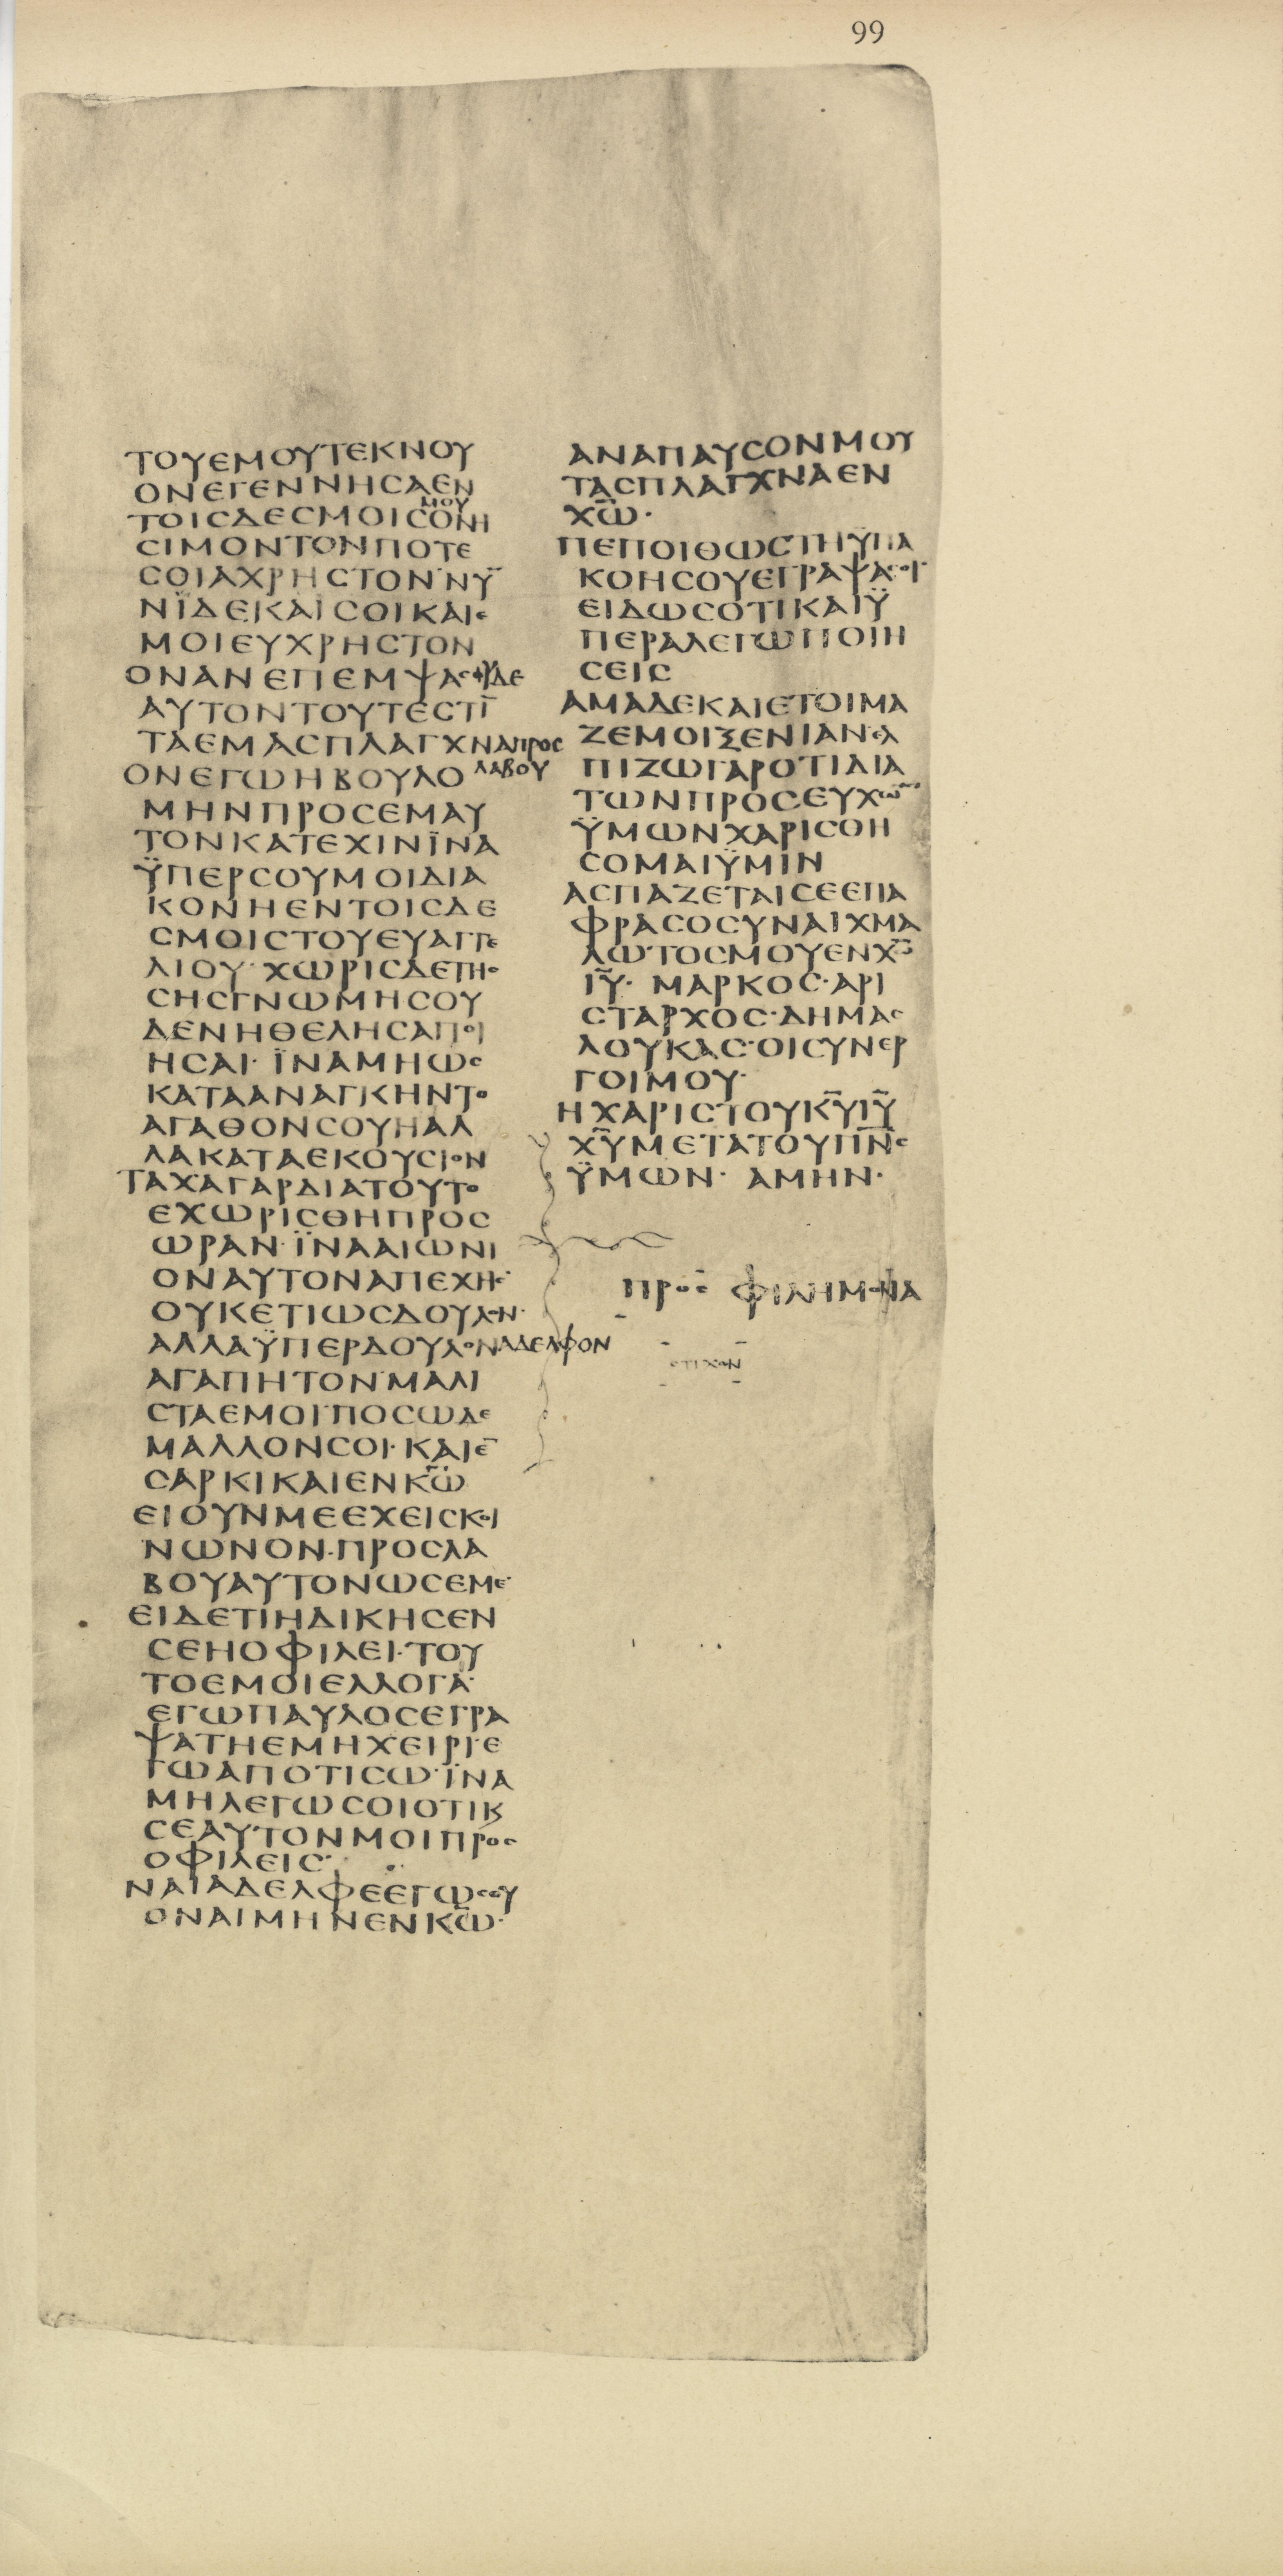 99
ΤΟΥΕΜΟΥΤΕΚΝΟΥ
ΟΝΕΓΕΝΝΗϹΑΕΝ
ΤΟΙϹΔΕϹΜΟΙϹΜΟΥΟΝΙ
ϹΙΜΟΝΤΟΝΠΟΤΕ
ϹΟΙΑΧΡΗϹΤΟΝ·ΝΥ
ΝΪΔΕΚΑΙϹΟΙΚΑΙΕ
ΜΟΙΕΥΧΡΗϹΤΟΝ
ΟΝΑΝΕΠΕΜΨΑϹΥΔΕ
ΑΥΤΟΝΤΟΥΤΕϹΤΙ̅
ΤΑΕΜΑϹΠΛΑΓΧΝΑΠΡΟϹ
ΛΑΒΟΥ
ΟΝΕΓΩΗΒΟΥΛΟ
ΜΗΝΠΡΟϹΕΜΑΥ
ΤΟΝΚΑΤΕΧΙΝΪΝΑ
ΫΠΕΡϹΟΥΜΟΙΔΙΑ
ΚΟΝΗΕΝΤΟΙϹΔΕ
ϹΜΟΙϹΤΟΥΕΥΑΓΓΕ
ΛΙΟΥ·ΧΩΡΙϹΔΕΤΗϹ
ϹΗϹΓΝΩΜΗϹΟΥ
ΔΕΝΗΘΕΛΗϹΑΠΟΙ
ΗϹΑΙ·ΪΝΑΜΗΩϹ
ΚΑΤΑΑΝΑΓΚΗΝΤΟ
ΑΓΑΘΟΝϹΟΥΗΑΛ
ΛΑΚΑΤΑΕΚΟΥϹΙΟΝ
ΤΑΧΑΓΑΡΔΙΑΤΟΥΤΟ
ΕΧΩΡΙϹΘΗΠΡΟϹ
ΩΡΑΝ·ΪΝΑΑΙΩΝΙ
ΟΝΑΥΤΟΝΑΠΕΧΗϹ·
ΟΥΚΕΤΙΩϹΔΟΥΛΟΝ·
ΑΛΛΑΫΠΕΡΔΟΥΛΟΝΑΔΕΛΦΟΝ
ΑΓΑΠΗΤΟΝ·ΜΑΛΙ
ϹΤΑΕΜΟΙ·ΠΟϹΩΔΕ
ΜΑΛΛΟΝϹΟΙ·ΚΑΙΕ̅
ϹΑΡΚΙΚΑΙΕΝΚ̅Ω̅
ΕΙΟΥΝΜΕΕΧΕΙϹΚΟΙ
ΝΩΝΟΝ·ΠΡΟϹΛΑ
ΒΟΥΑΥΤΟΝΩϹΕΜΕ·
ΕΙΔΕΤΙΗΔΙΚΗϹΕΝ
ϹΕΗΟΦΙΛΕΙ·ΤΟΥ
ΤΟΕΜΟΙΕΛΛΟΓΑ·
ΕΓΩΠΑΥΛΟϹΕΓΡΑ
ΨΑΤΗΕΜΗΧΕΙΡΙ·Ε
ΓΩΑΠΟΤΙϹΩ·ΪΝΑ
ΜΗΛΕΓΩϹΟΙΟΤΙΚ
ϹΕΑΥΤΟΝΜΟΙΠΡΟϹ
ΟΦΙΛΕΙϹ·
ΝΑΙΑΔΕΛΦΕΕΓΩϹΟΥ
ΟΝΑΙΜΗΝΕΝΚ̅Ω̅·
ΑΝΑΠΑΥϹΟΝΜΟΥ
ΤΑϹΠΛΑΓΧΝΑΕΝ
Χ̅Ω̅·
ΠΕΠΟΙΘΩϹΤΗΫΠΑ
ΚΟΗϹΟΥΕΓΡΑΨΑϹΟΙ
ΕΙΔΩϹΟΤΙΚΑΙΫ
ΠΕΡΑΛΕΓΩΠΟΙΗ
ϹΕΙϹ
ΑΜΑΔΕΚΑΙΕΤΟΙΜΑ
ΖΕΜΟΙΞΕΝΙΑΝ·ΕΛ
ΠΙΖΩΓΑΡΟΤΙΔΙΑ
ΤΩΝΠΡΟϹΕΥΧΩ̅
ΫΜΩΝΧΑΡΙϹΘΗ
ϹΟΜΑΙΫΜΙΝ
ΑϹΠΑΖΕΤΑΙϹΕΕΠΑ
ΦΡΑϹΟϹΥΝΑΙΧΜΑ
ΛΩΤΟϹΜΟΥΕΝΧ̅Ω̅
Ι̅Υ̅· ΜΑΡΚΟϹ·ΑΡΙ
ϹΤΑΡΧΟϹ·ΔΗΜΑϹ
ΛΟΥΚΑϹ·ΟΙϹΥΝΕΡ
ΓΟΙΜΟΥ·
ΗΧΑΡΙϹΤΟΥΚ̅Υ̅Ι̅Υ̅
Χ̅Υ̅ΜΕΤΑΤΟΥΠ̅Ν̅Ϲ̅
ΫΜΩΝ· ΑΜΗΝ·
ΠΡΟϹ ΦΙΛΗΜΟΝΑ
ϹΤΙΧΩΝ